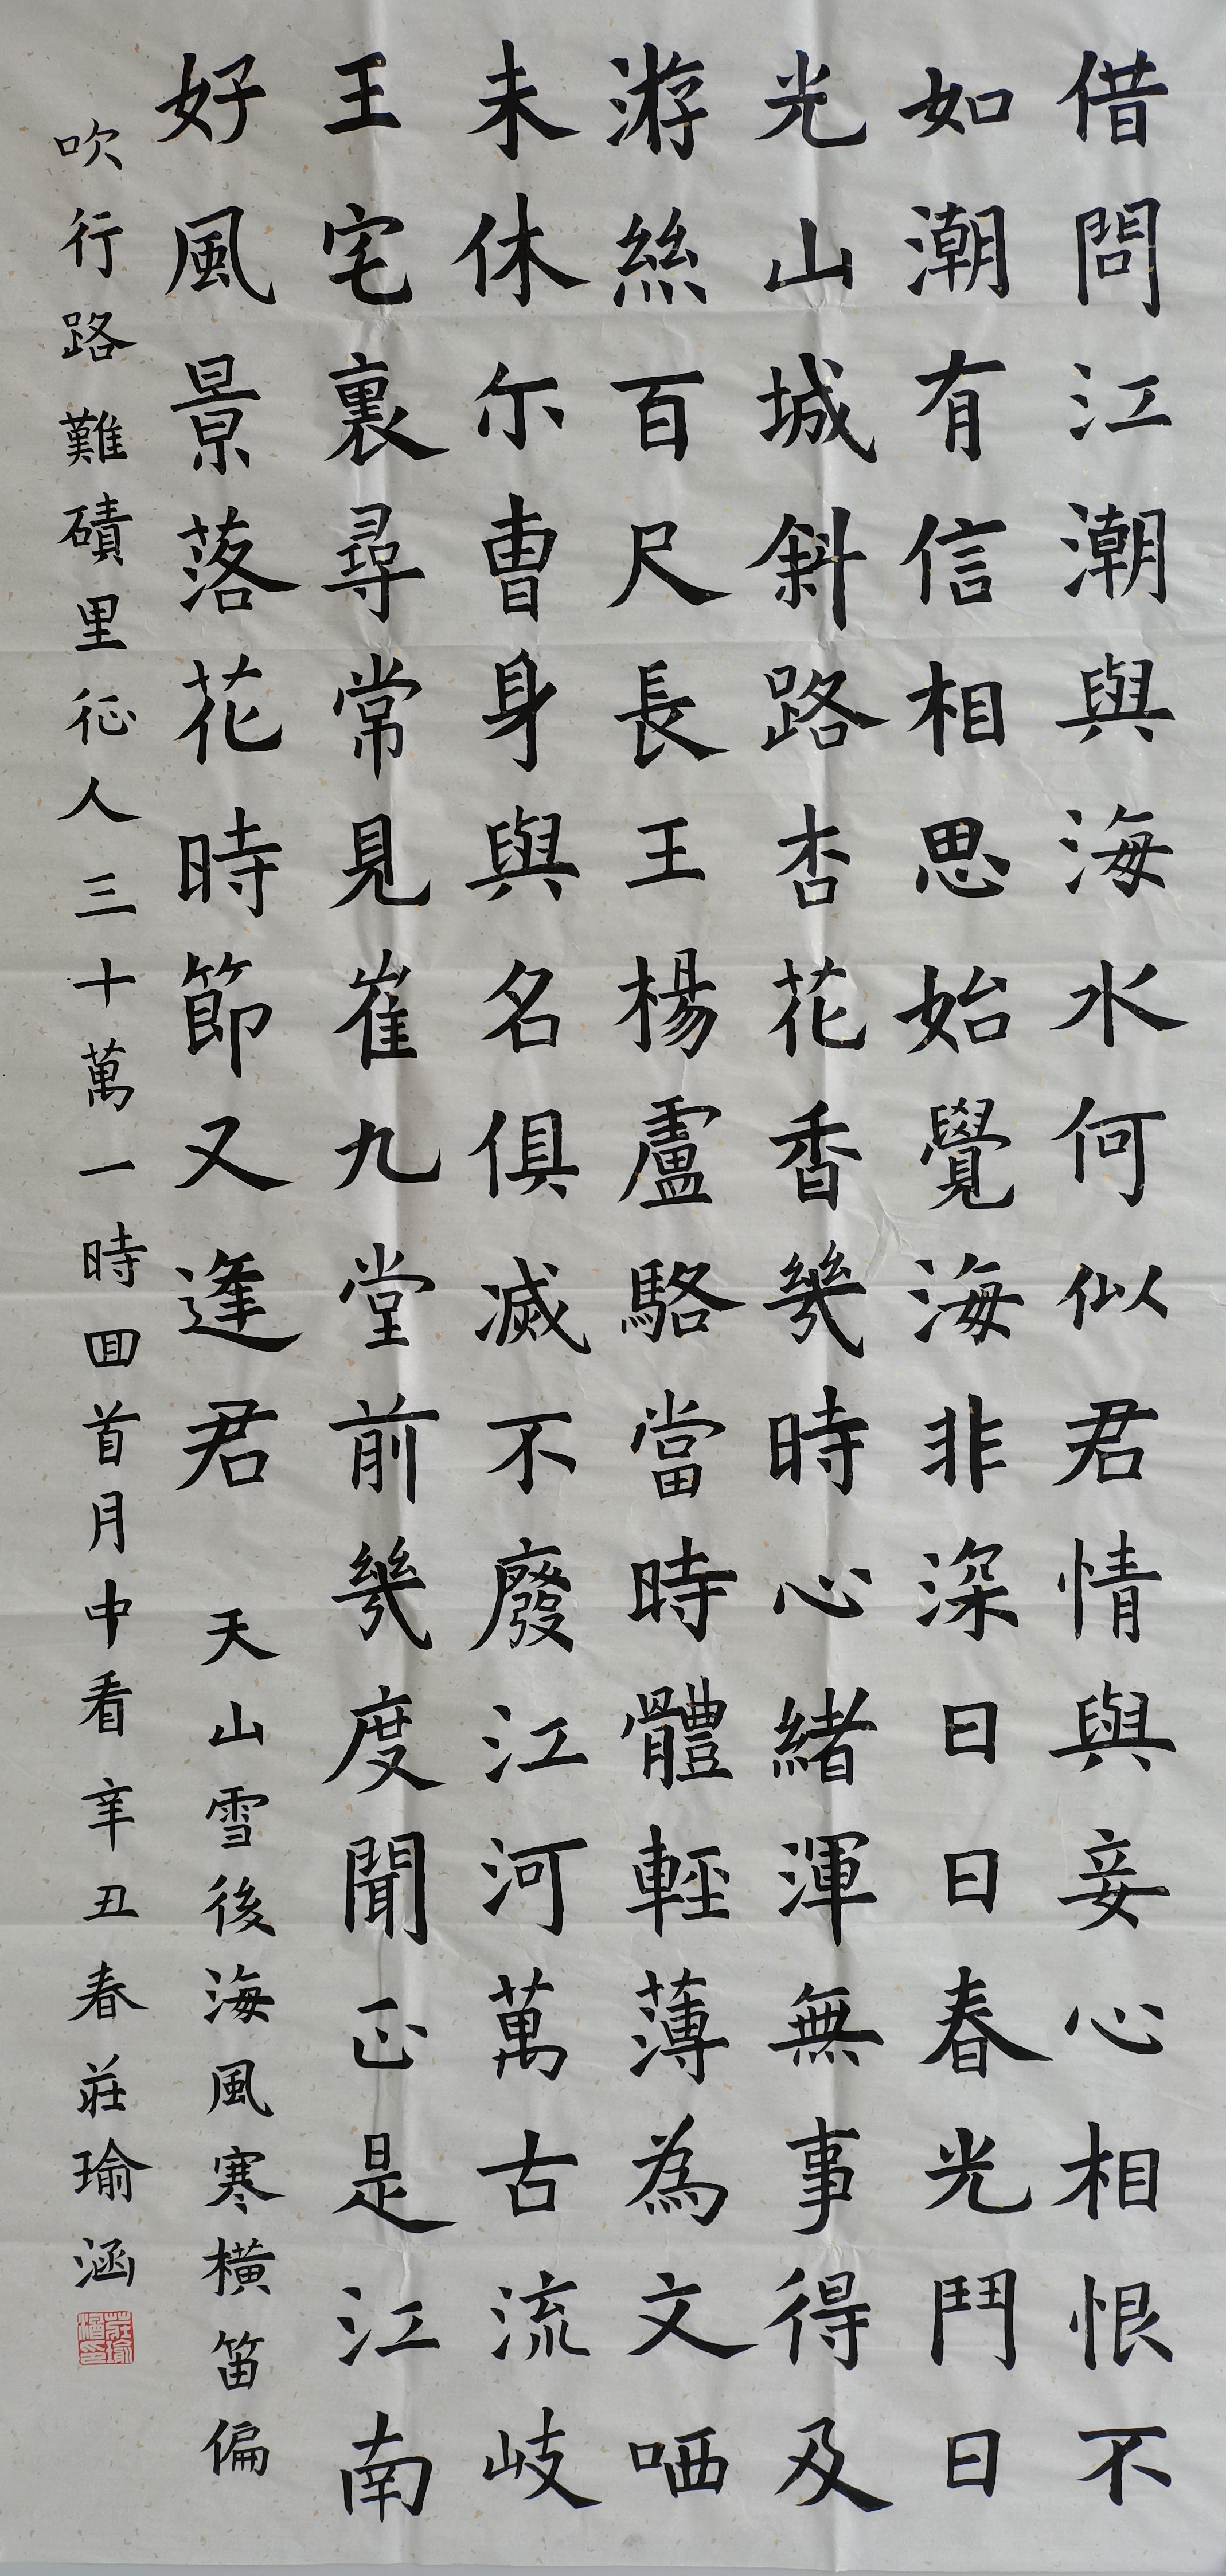 借問江潮與海水何似君情與妾心相恨不
如潮有信相思始覺海非深日日春光鬥日
光山城斜路杏花香幾時心緒渾無事得及
游絲百尺長王楊盧駱當時體輕薄為文哂
未休尔曹身與名俱滅不廢江河萬古流岐
王宅裏尋常見崔九堂前幾度聞正是江南
好風景落花時節又逢君 天山雪後海風寒橫笛偏
吹行路難磧里征人三十萬一時回首月中看 辛丑春莊瑜涵